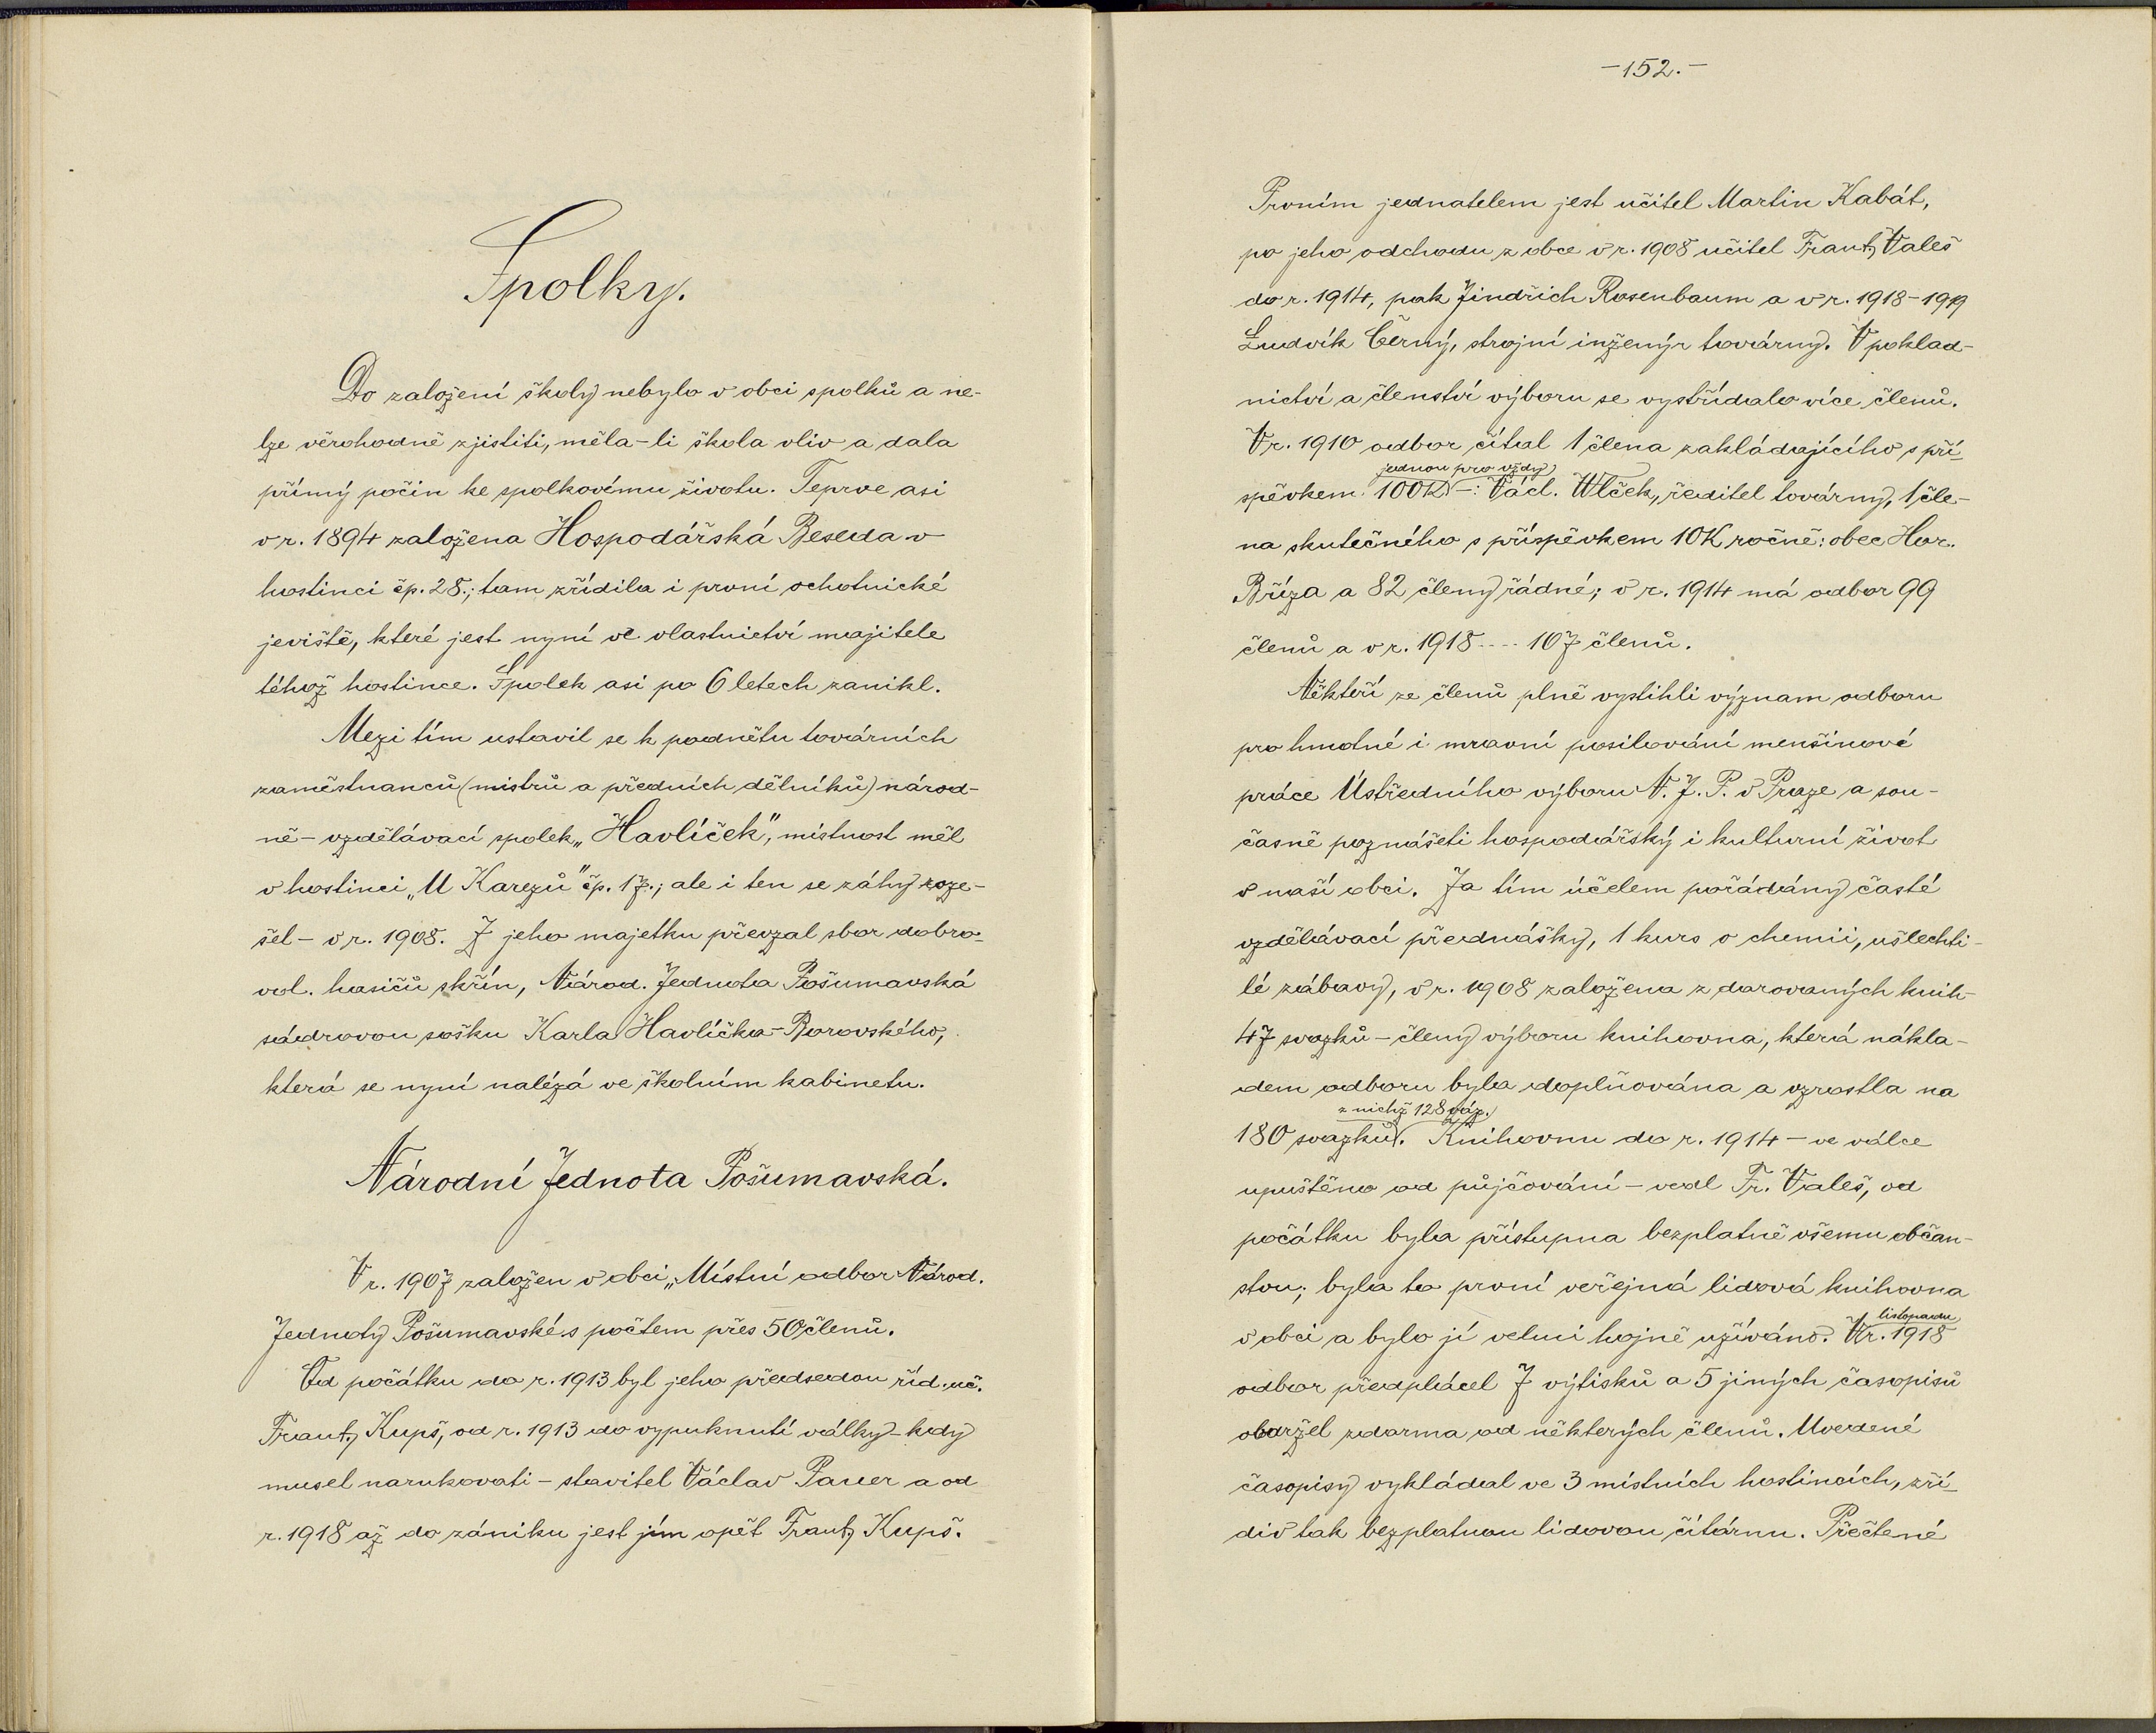 Spolky.
Do založení školy nebylo v obci spolků a ne-
lze věrohodně zjistiti, měla-li škola vliv a dala
přímý počin ke spolkovému životu. Teprve asi
v r. 1894 založena Hospodářská Beseda v
hostinci čp. 28.; tam zřídila i první ochotnické
jeviště, které jest nyní ve vlastnictví majitele
téhož hostince. Spolek asi po 6 letech zanikl.
Mezi tím ustavil se k podnětu továrních
zaměstnanců (mistrů a předních dělníků) národ-
ně-vzdělávací spolek „Havlíček“, místnost měl
v hostinci „U Karezů“ čp. 17.; ale i ten se záhy roze-
šel - v r. 1908. Z jeho majetku převzal sbor dobro-
vol. hasičů skřín, Národ. Jednota Pošumavská
sádrovou sošku Karla Havlíčka-Borovského,
která se nyní nalézá ve školním kabinetu.
Národní Jednota Pošumavská.
V r. 1907 založen v obci „Místní odbor Národ.
Jednoty Pošumavské s počtem přes 50 členů.
Od počátku do r. 1913 byl jeho předsedou říd. uč.
Frant. Kupš, od r. 1913 do vypuknutí války - kdy
musel narukovati - stavitel Václav Pauer a od
r. 1918 až do zániku jest jím opět Frant. Kupš.
-152.-
Prvním jednatelem jest učitel Martin Kabát,
po jeho odchodu z obce v r. 1908 učitel Frant. Valeš
do r. 1914, pak Jindřich Rosenbaum a v r. 1918-1919
Ludvík Černý, strojní inženýr továrny. V poklad-
nictví a členství výboru se vystřídalo více členů.
V r. 1910 odbor čítal 1 člena zakládajícího s pří-
jednou pro vždy
spěvkem 100K -: Václ. Wlček, ředitel továrny, 1 čle-
na skutečného s příspěvkem 10K ročně: obec Hor.
Bříza a 82 členy řádné; v r. 1914 má odbor 99
členů a v r. 1918 ---- 107 členů.
Někteří ze členů plně vystihli význam odboru
pro hmotné i mravní posilování menšinové
práce Ústředního výboru N. J. P. v Praze a sou-
časně poznášeti hospodářský i kulturní život
v naší obci. Za tím účelem pořádány časté
vzdělávací přednášky, 1 kurs o chemii, ušlechti-
lé zábavy, v r. 1908 založena z darovaných knih-
47 svazků - členy výboru knihovna, která nákla-
dem odboru byla doplňována a vzrostla na
z nichž 128 váz.
180 svazků. Knihovnu do r. 1914 - ve válce
upuštěno od půjčování - vedl Fr. Valeš, od
počátku byla přístupna bezplatně všemu občan-
stvu; byla to první veřejná lidová knihovna
listopadu
v obci a bylo jí velmi hojně užíváno. V r. 1918
odbor předplácel 7 výtisků a 5 jiných časopisů
obdržel zdarma od některých členů. Uvedené
časopisy vykládal ve 3 místních hostincích, zří-
div tak bezplatnou lidovou čítárnu. Přečtené